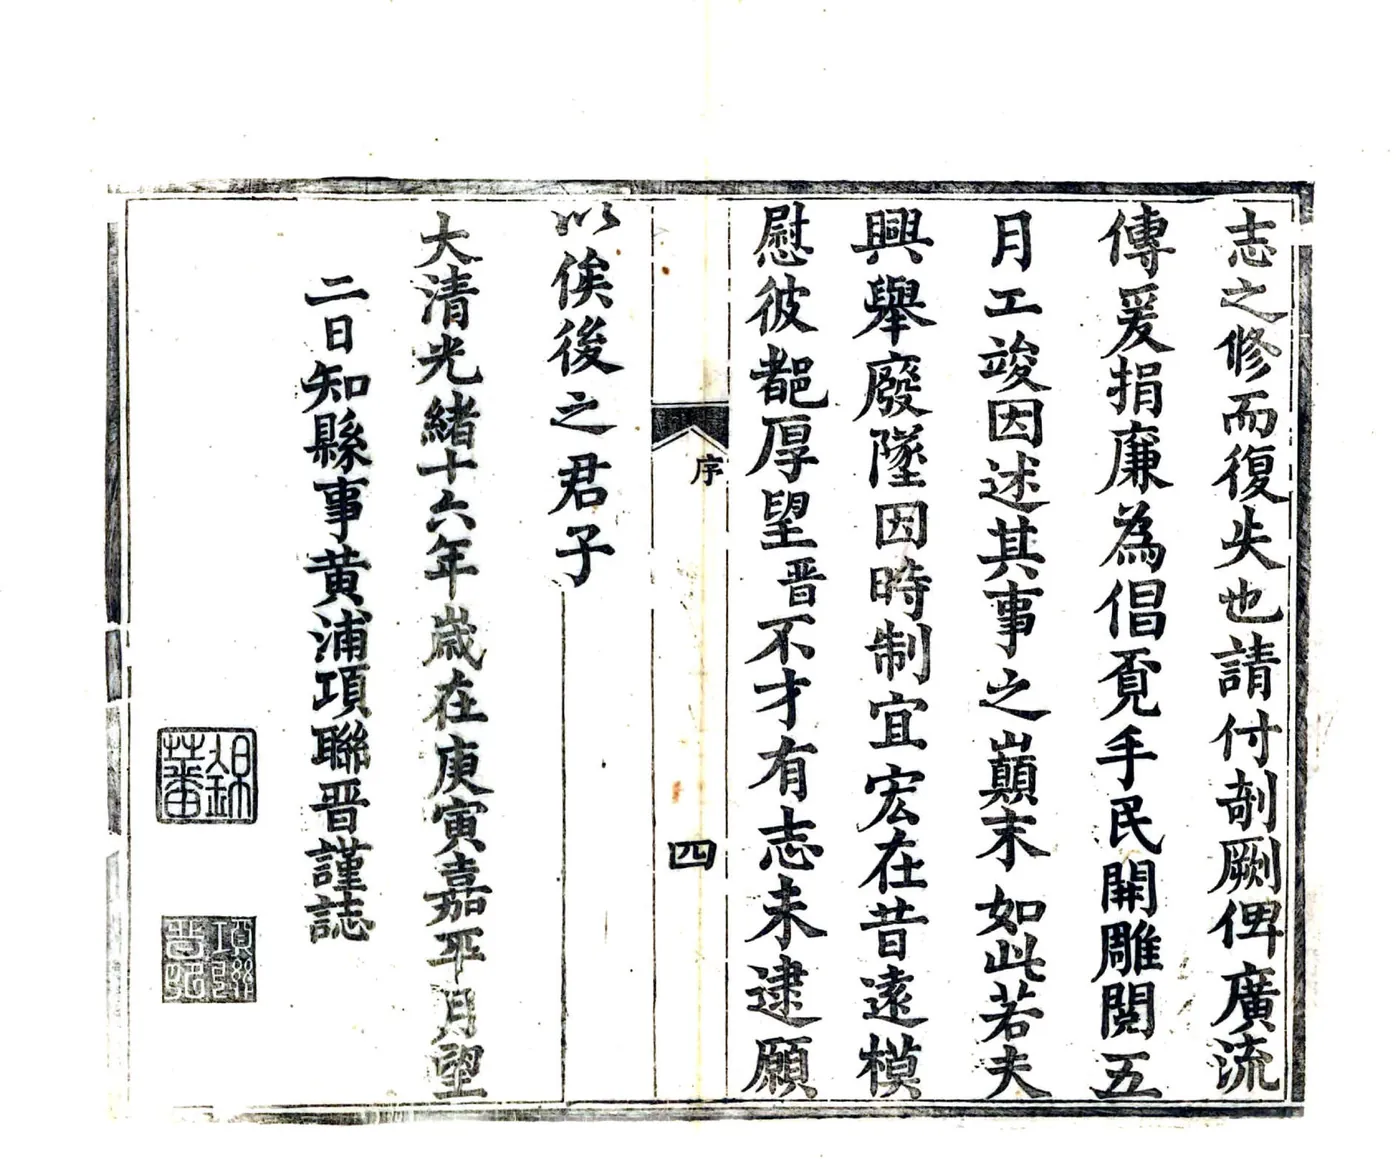 志之修而復失也請付剞劂俾廣流
傳爰捐廉為倡覔手民開雕閱五
月工竣因述其事之巔末如此若夫
興舉廢墜因時制宜宏在昔遠模
慰彼都厚望晋不才有志未逮願
序
四
以俟後之君子
大清光緒十六年歲在庚寅嘉平月望
二日知縣事黄浦項聯晋謹誌
錦蕃
項聯晉印